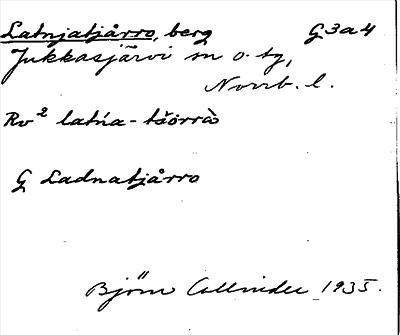 Latnjatjårro, berg G3a4
Jukkasjärvi sn o. tg,
Norrb. l.
Rv² latńa-tšɔ̄rrò
G Ladnatjårro
Björn Collinder 1935.